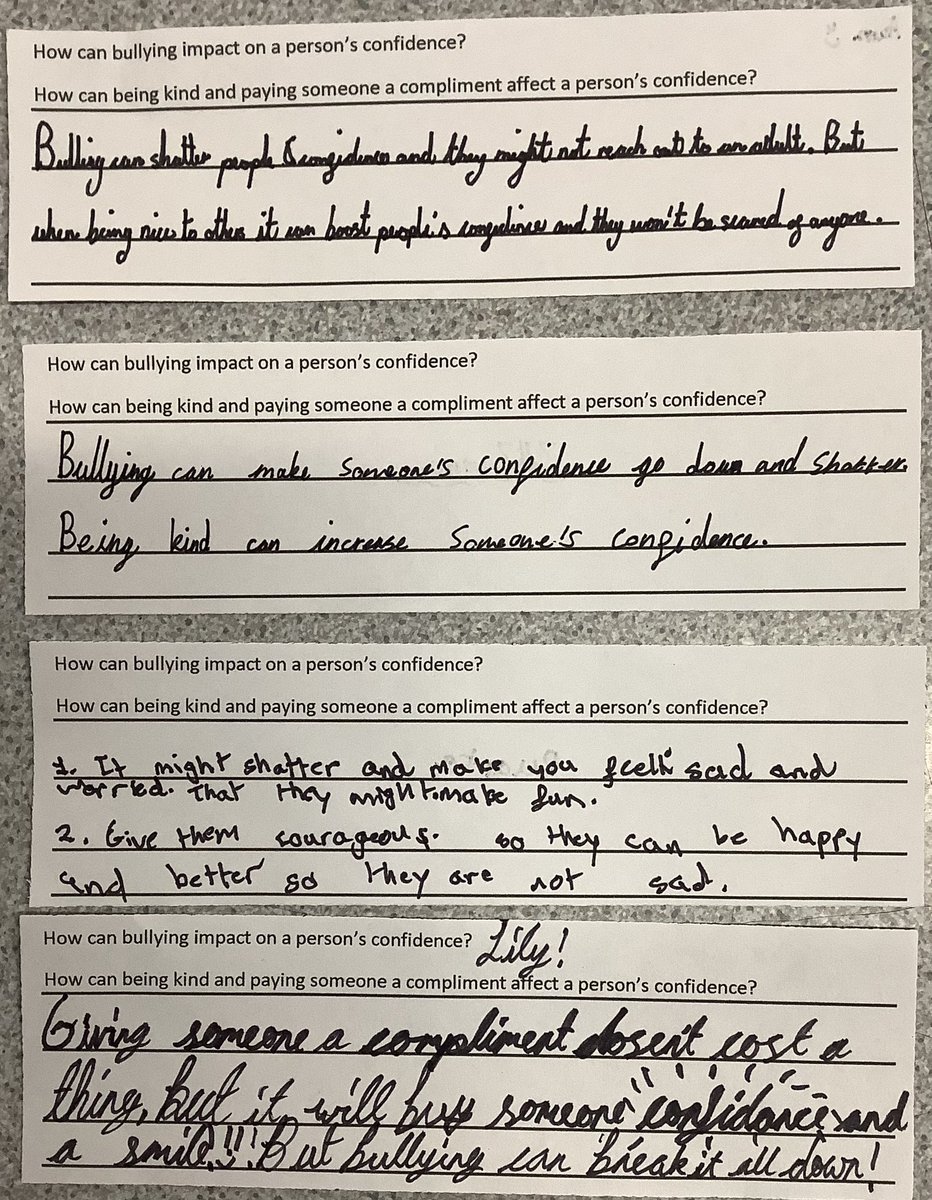 How can bullying impact on a person's confidence?
How can being kind and paying someone a compliment affect a person's confidence?
Bulling can shatter people's confidence and they might not reach out to an adult. But
when being nice to others it can boost people's confidence and they won't be scared of anyone.
How can bullying impact on a person's confidence?
How can being kind and paying someone a compliment affect a person's confidence?
Bullying can make someone's confidence go down and shatter.
Being kind can increase someone's confidence.
How can bullying impact on a person's confidence?
How can being kind and paying someone a compliment affect a person's confidence?
1. It might shatter and make you feell sad and
worried. that they might make fun.
2. Give them courageous. so they can be happy
and better so they are not sad.
How can bullying impact on a person's confidence? Lily!
How can being kind and paying someone a compliment affect a person's confidence?
Giving someone a compliment dosen't cost a
thing, but it will buy someone confidance and
a smile!!! But bullying can break it all down!